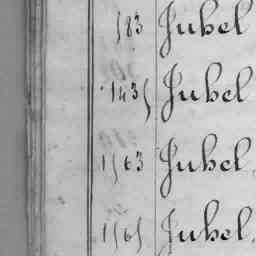 583 Jubel
1435 Jubel
1563 Jubel
1565 Jubel